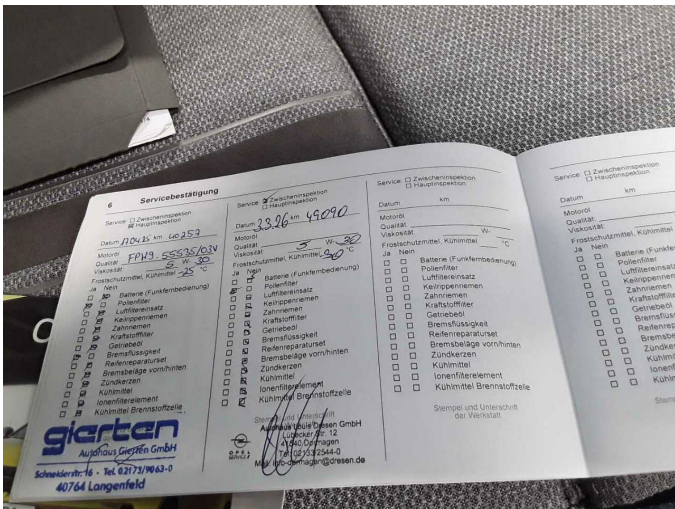 6 Servicebestätigung
Service: Zwischeninspektion
Hauptinspektion
Datum 17.04.25 km 40257
Motoröl
Qualität FPW9.55535/03
Viskosität 5 W- 30
Frostschutzmittel, Kühlmittel -25 °C
Ja Nein
Batterie (Funkfernbedienung)
Pollenfilter
Luftfiltereinsatz
Keilrippenriemen
Zahnriemen
Kraftstofffilter
Getriebeöl
Bremsflüssigkeit
Reifenreparaturset
Bremsbeläge vorn/hinten
Zündkerzen
Kühlmittel
Ionenfilterelement
Kühlmittel Brennstoffzelle
gierten
Autohaus Gierten GmbH
Schneiderstr. 16 - Tel. 02173/9063-0
40764 Langenfeld
Service: Zwischeninspektion
Hauptinspektion
Datum 3.3.26 km 49090
Motoröl
Qualität
Viskosität 5 W- 30
Frostschutzmittel, Kühlmittel 30 °C
Ja Nein
Batterie (Funkfernbedienung)
Pollenfilter
Luftfiltereinsatz
Keilrippenriemen
Zahnriemen
Kraftstofffilter
Getriebeöl
Bremsflüssigkeit
Reifenreparaturset
Bremsbeläge vorn/hinten
Zündkerzen
Kühlmittel
Ionenfilterelement
Kühlmittel Brennstoffzelle
Stempel und Unterschrift
Autohaus Louis Dresen GmbH
Lübecker Str. 12
41540 Dormagen
Tel. 02133/2544-0
Mail: info-dormagen@dresen.de
OPEL
SERVICE
Service: Zwischeninspektion
Hauptinspektion
Datum km
Motoröl
Qualität
Viskosität W-
Frostschutzmittel, Kühlmittel °C
Ja Nein
Batterie (Funkfernbedienung)
Pollenfilter
Luftfiltereinsatz
Keilrippenriemen
Zahnriemen
Kraftstofffilter
Getriebeöl
Bremsflüssigkeit
Reifenreparaturset
Bremsbeläge vorn/hinten
Zündkerzen
Kühlmittel
Ionenfilterelement
Kühlmittel Brennstoffzelle
Stempel und Unterschrift
der Werkstatt
Service: Zwischeninspektion
Hauptinspektion
Datum km
Motoröl
Qualität
Viskosität
Frostschutzmittel, Kühlmi
Ja Nein
Batterie (Funkfe
Pollenfilter
Luftfiltereinsatz
Keilrippenrieme
Zahnriemen
Kraftstofffilte
Getriebeöl
Bremsflüss
Reifenrepa
Bremsbe
Zündker
Kühlm
Ionenfi
Kühl
Stem